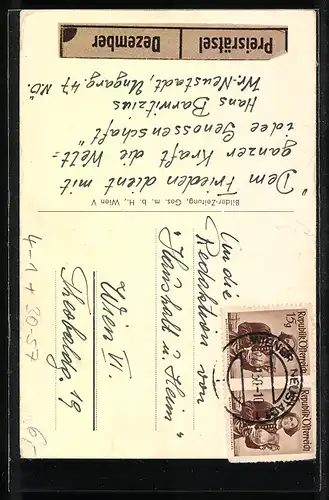 Preisrätsel
Dezember
"Dem Frieden dient mit
ganzer Kraft die Welt=
idee Genossenschaft"
Hans Barwitzius
Wr. Neustadt, Ungarg. 47 NÖ.
Bilder-Zeitung, Ges. m. b. H., Wien V
An die
Redaktion von
"Haushalt u. Heim"
Wien VI.
Theobaldg. 19
Republik Österreich
15g
Republik Österreich
WIENER NEUSTADT
4-1+30-57
6,-